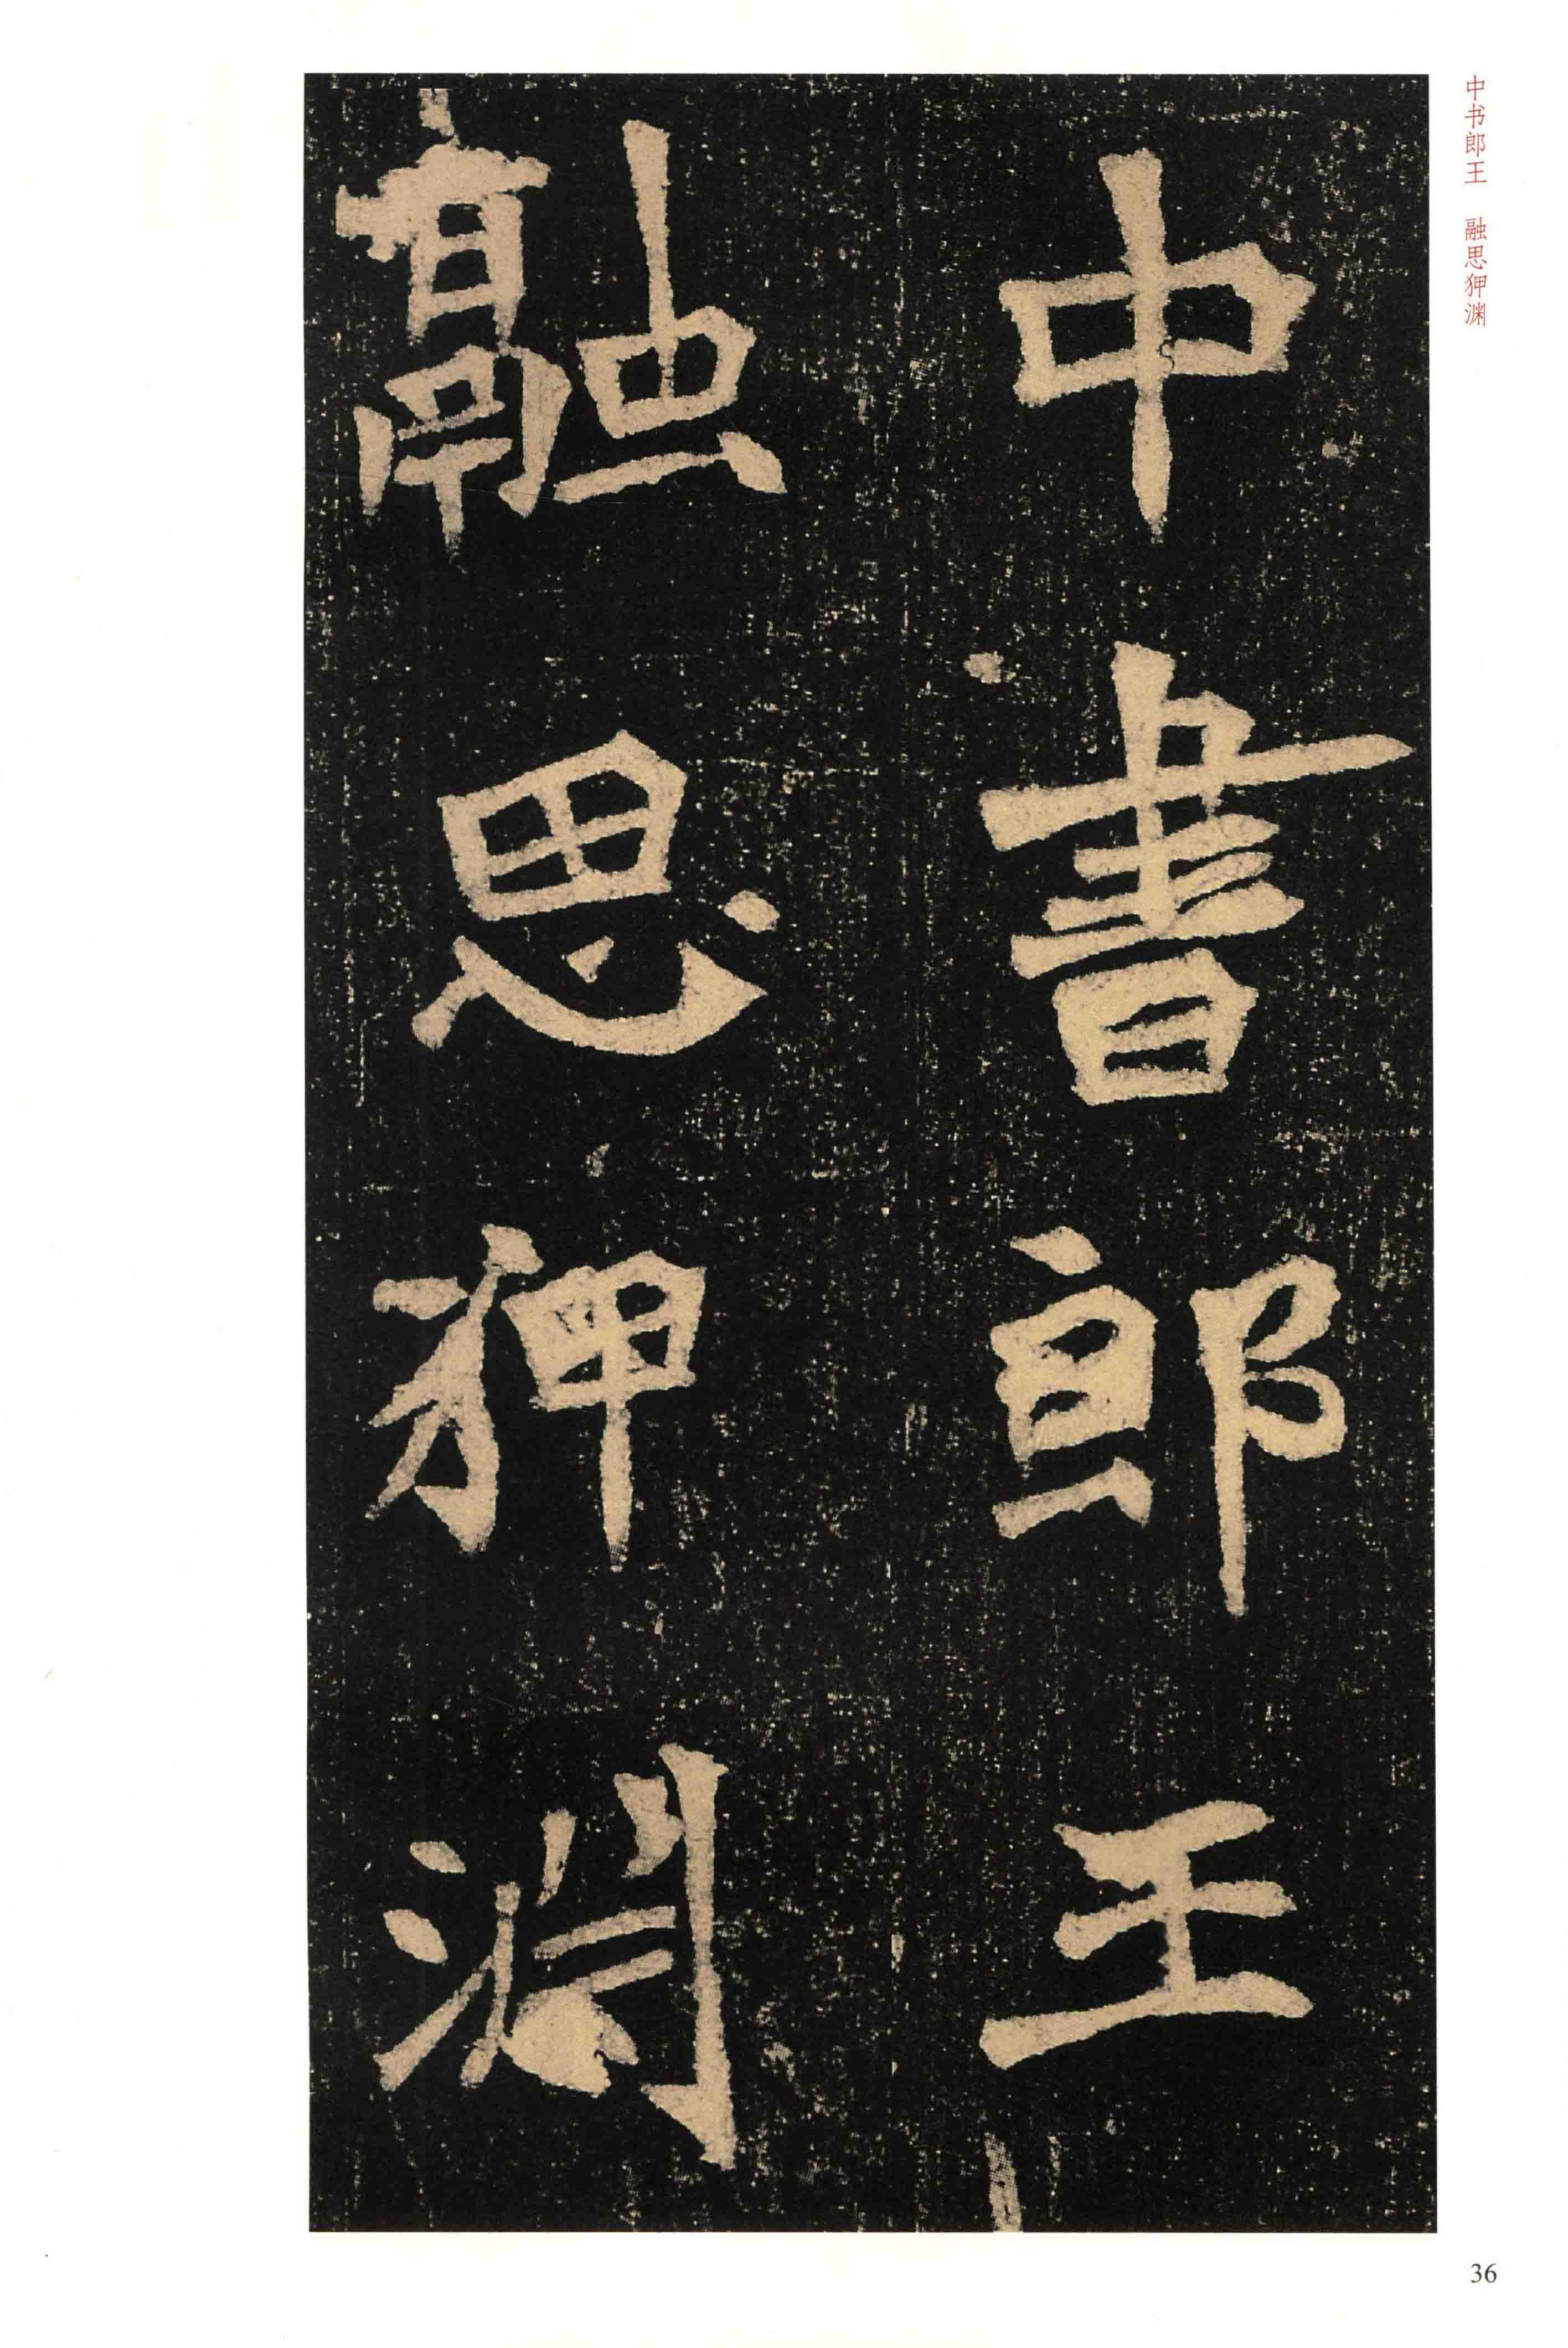 中书郎王　融思狎渊
中書郎王
融思狎淵
36